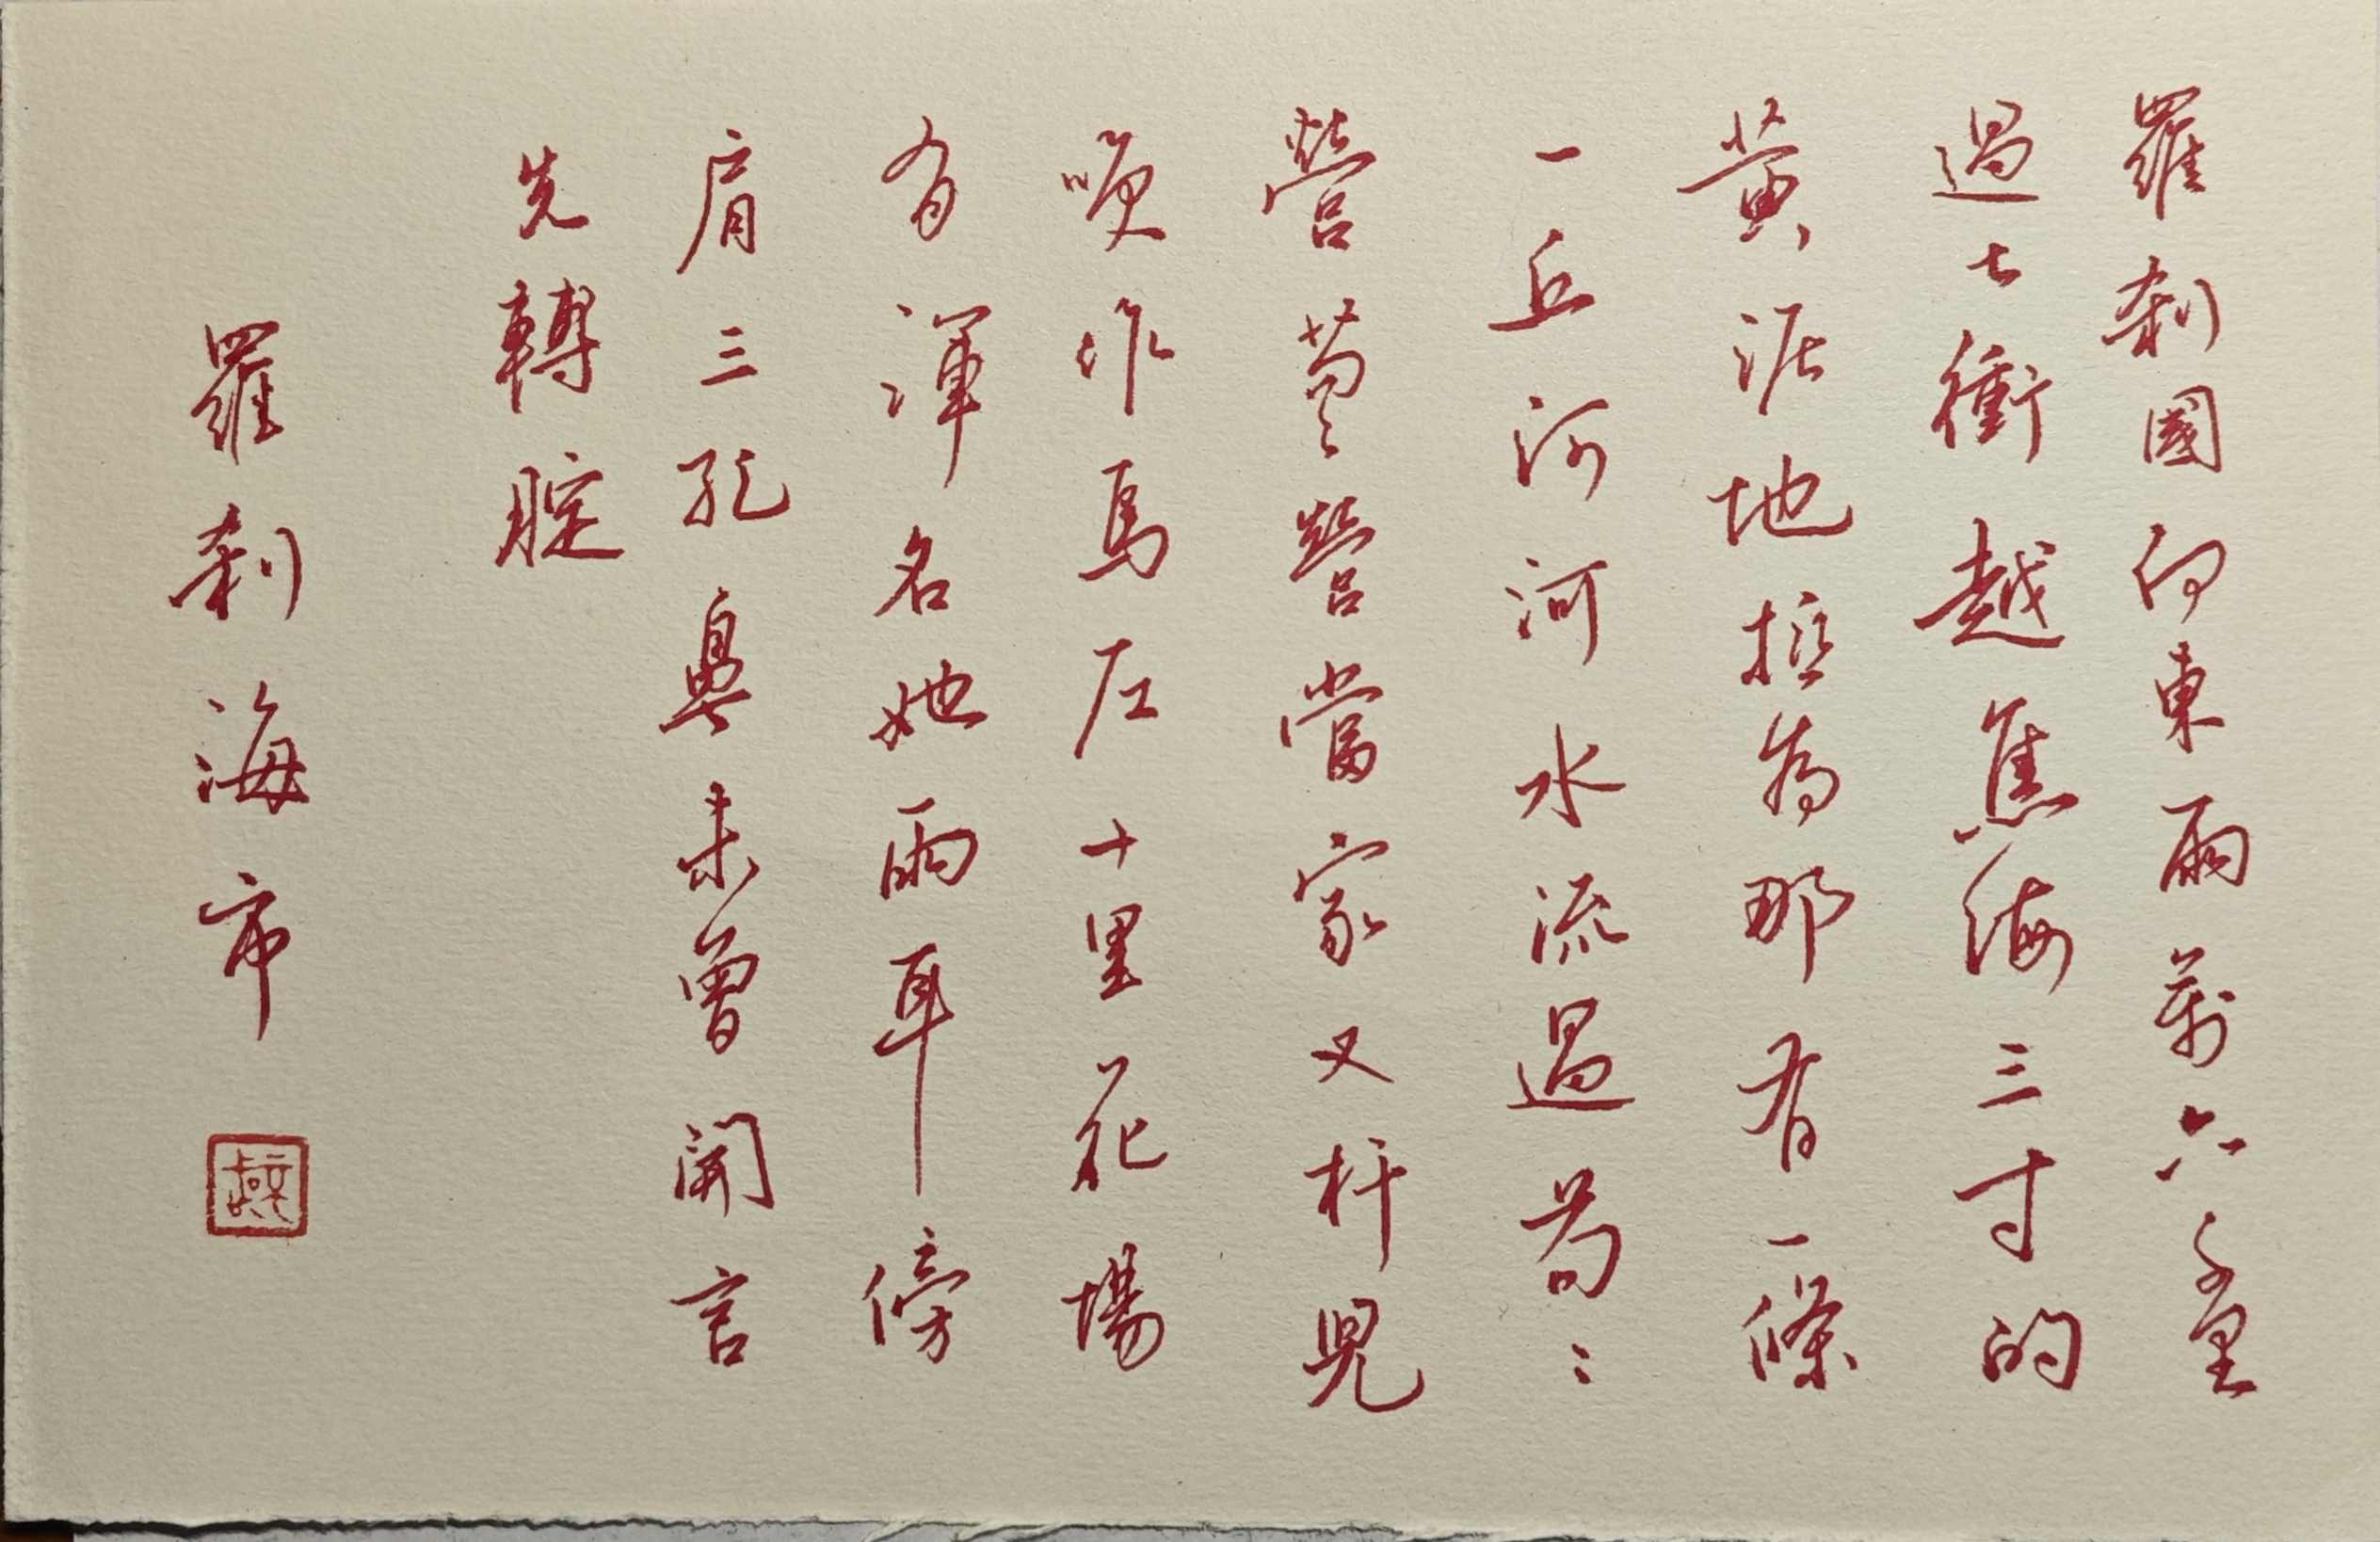 羅刹國向東兩萬六千里
過七衝越焦海三寸的
黃泥地祇為那有一條
一丘河河水流過苟〻
營苟〻營當家又杆兒
喚作馬左十里花場
有渾名她兩耳傍
肩三孔鼻未曾開言
先轉腚
羅刹海市